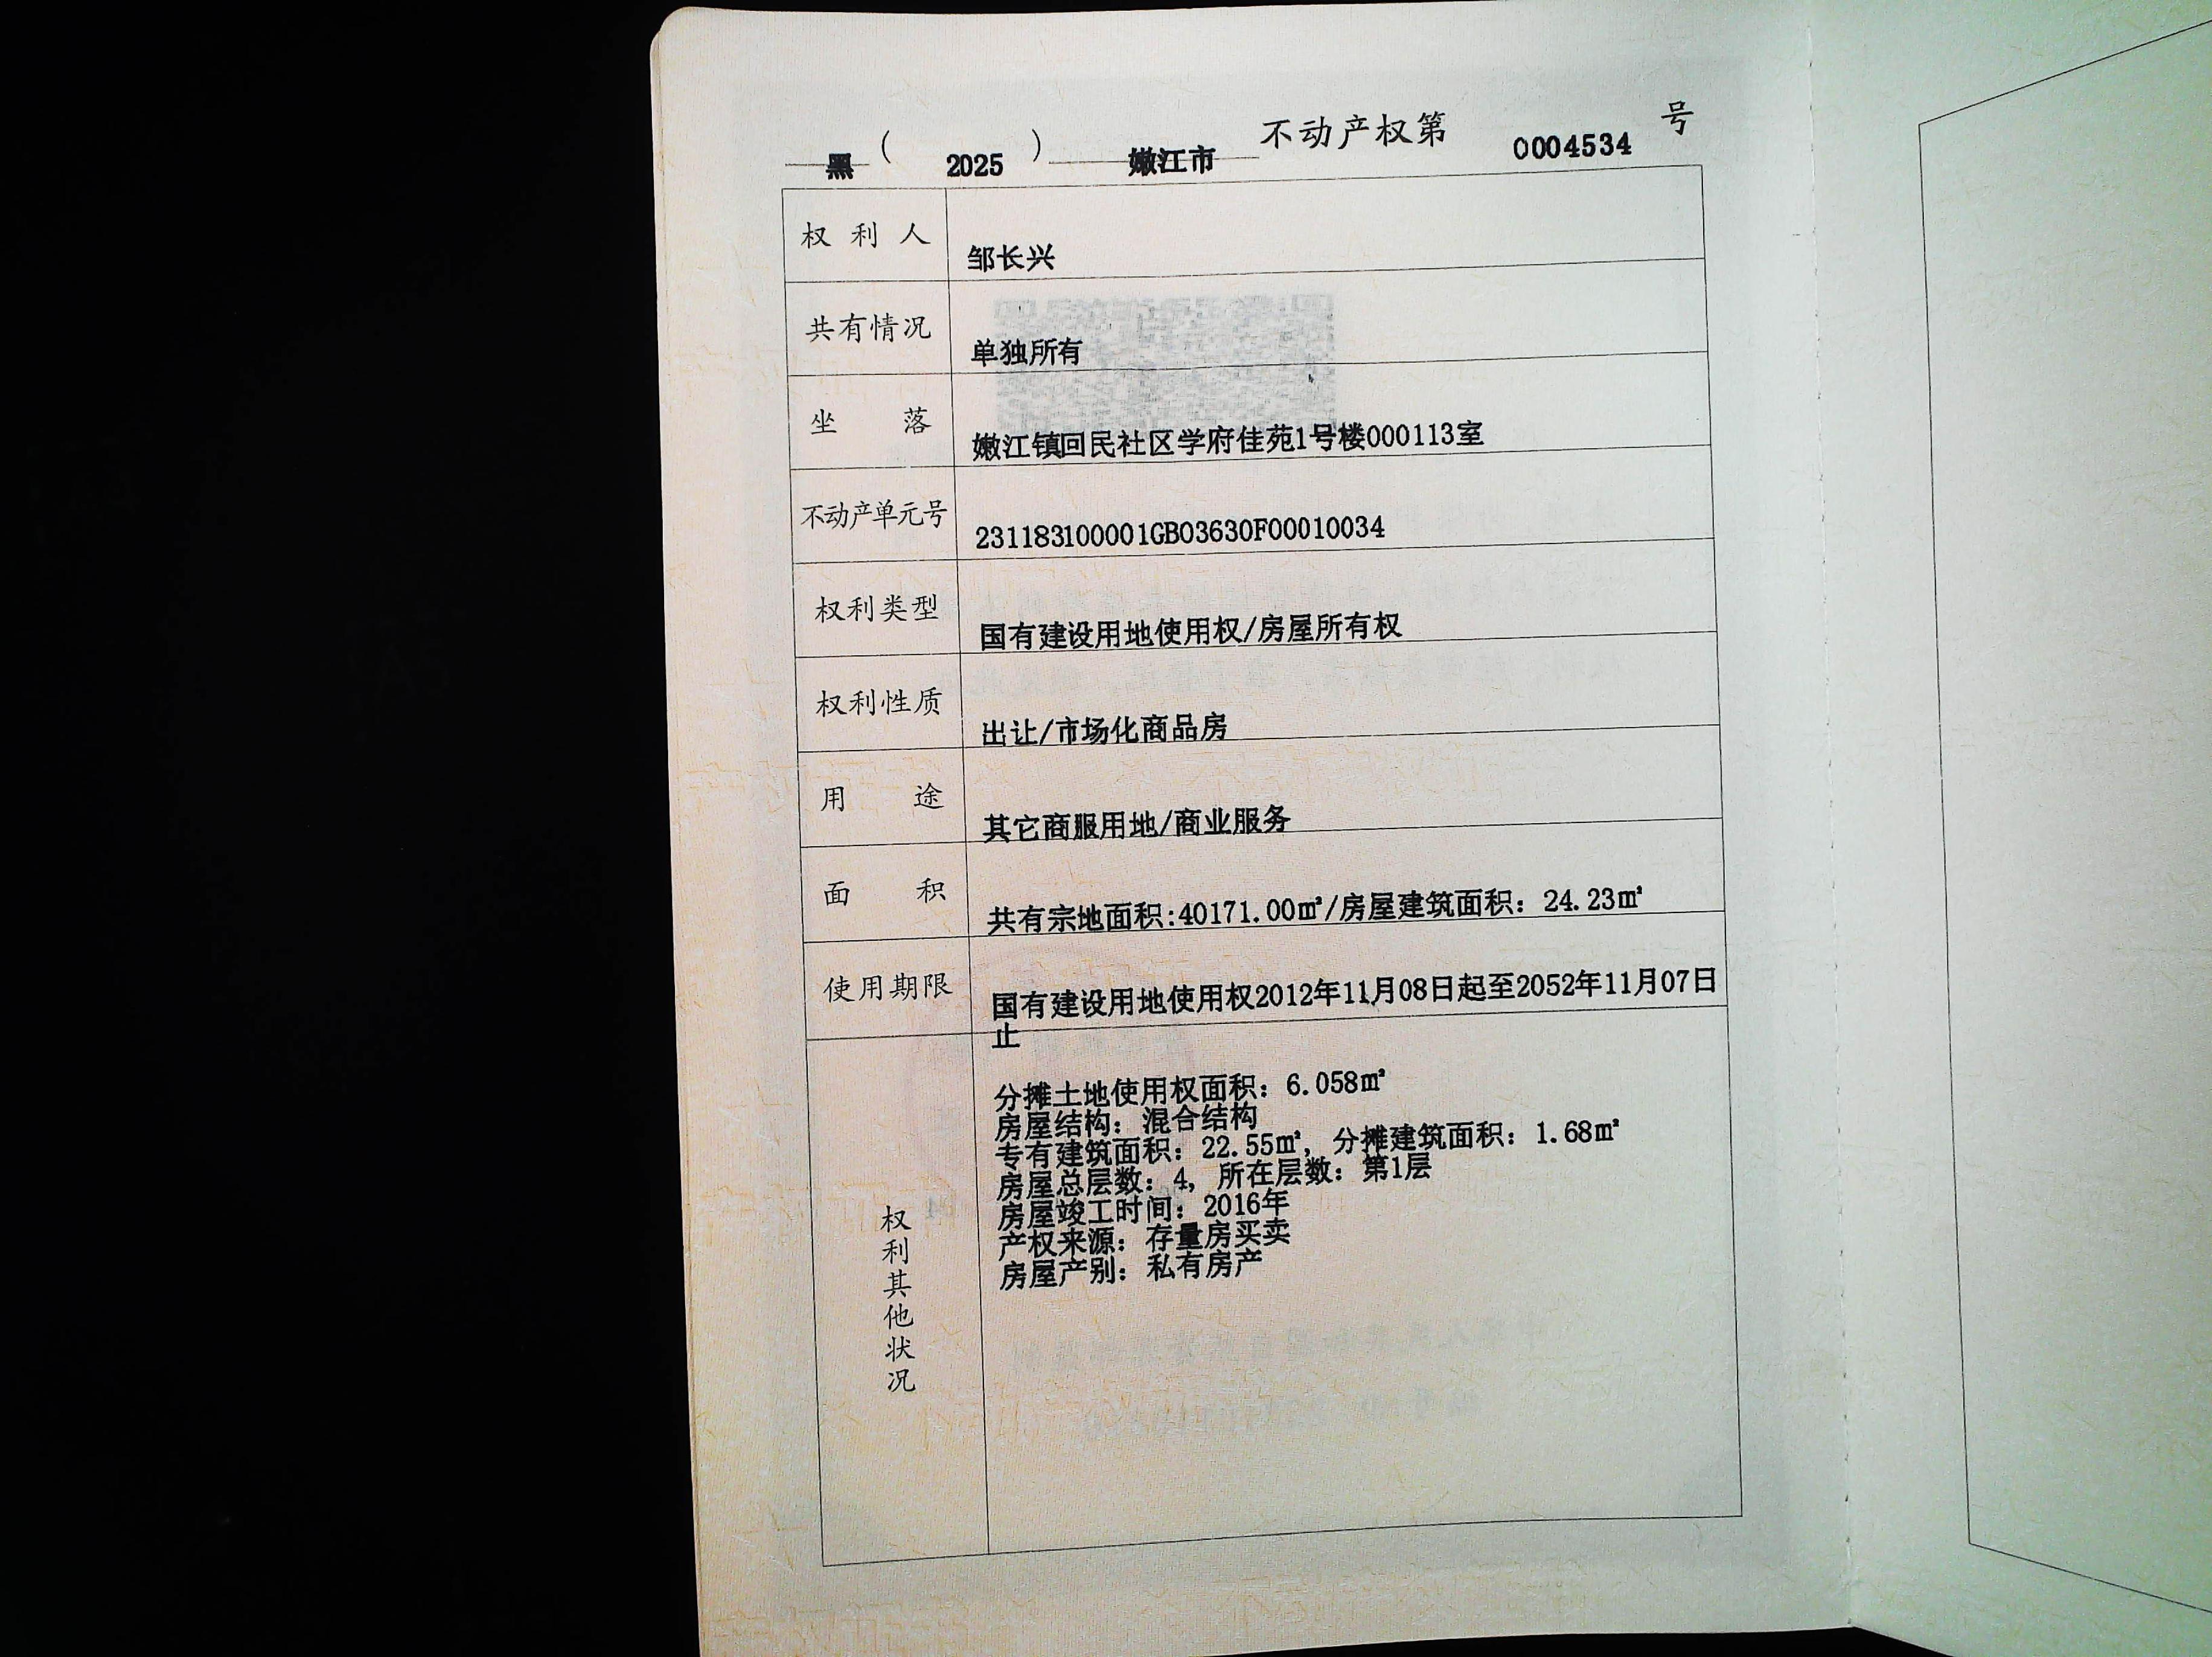 黑（2025）嫩江市不动产权第0004534号
权利人 邹长兴
共有情况 单独所有
坐落 嫩江镇回民社区学府佳苑1号楼000113室
不动产单元号 231183100001GB03630F00010034
权利类型 国有建设用地使用权/房屋所有权
权利性质 出让/市场化商品房
用途 其它商服用地/商业服务
面积 共有宗地面积:40171.00㎡/房屋建筑面积：24.23㎡
使用期限 国有建设用地使用权2012年11月08日起至2052年11月07日
止
权利其他状况
分摊土地使用权面积：6.058㎡
房屋结构：混合结构
专有建筑面积：22.55㎡，分摊建筑面积：1.68㎡
房屋总层数：4，所在层数：第1层
房屋竣工时间：2016年
产权来源：存量房买卖
房屋产别：私有房产